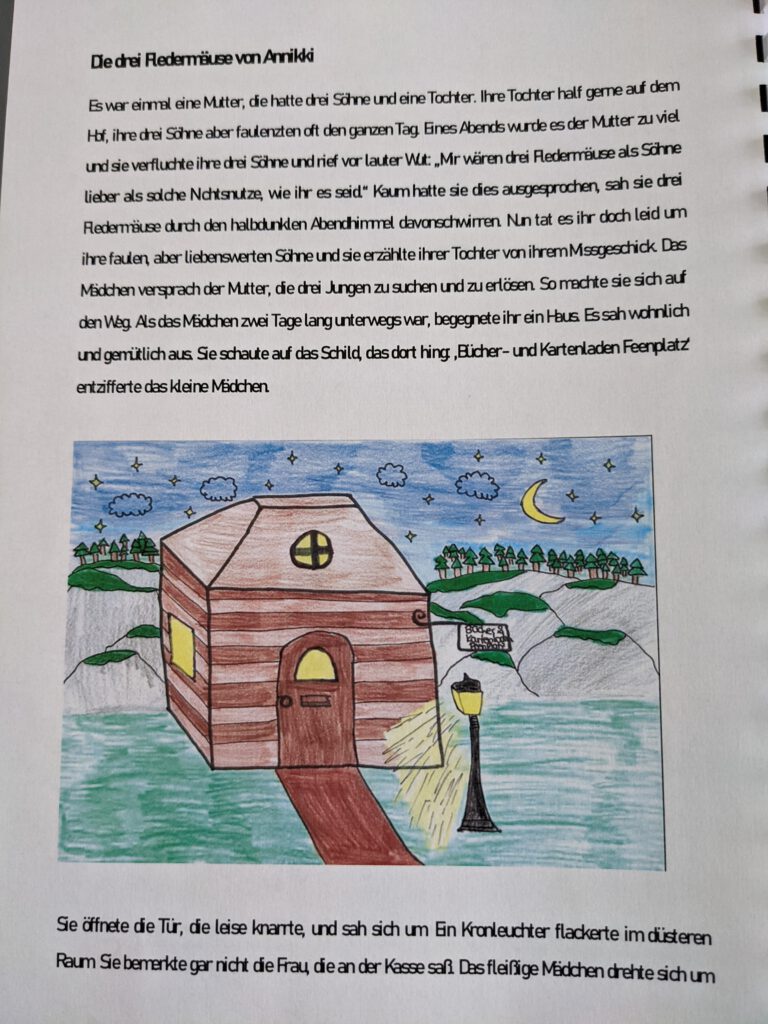 Die drei Fledermäuse von Annikki
Es war einmal eine Mutter, die hatte drei Söhne und eine Tochter. Ihre Tochter half gerne auf dem
Hof, ihre drei Söhne aber faulenzten oft den ganzen Tag. Eines Abends wurde es der Mutter zu viel
und sie verfluchte ihre drei Söhne und rief vor lauter Wut: „Mir wären drei Fledermäuse als Söhne
lieber als solche Nichtsnutze, wie ihr es seid.“ Kaum hatte sie dies ausgesprochen, sah sie drei
Fledermäuse durch den halbdunklen Abendhimmel davonschwirren. Nun tat es ihr doch leid um
ihre faulen, aber liebenswerten Söhne und sie erzählte ihrer Tochter von ihrem Missgeschick. Das
Mädchen versprach der Mutter, die drei Jungen zu suchen und zu erlösen. So machte sie sich auf
den Weg. Als das Mädchen zwei Tage lang unterwegs war, begegnete ihr ein Haus. Es sah wohnlich
und gemütlich aus. Sie schaute auf das Schild, das dort hing: ‚Bücher- und Kartenladen Feenplatz‘
entzifferte das kleine Mädchen.
Bücher &
Kartenladen
Sie öffnete die Tür, die leise knarrte, und sah sich um. Ein Kronleuchter flackerte im düsteren
Raum. Sie bemerkte gar nicht die Frau, die an der Kasse saß. Das fleißige Mädchen drehte sich um